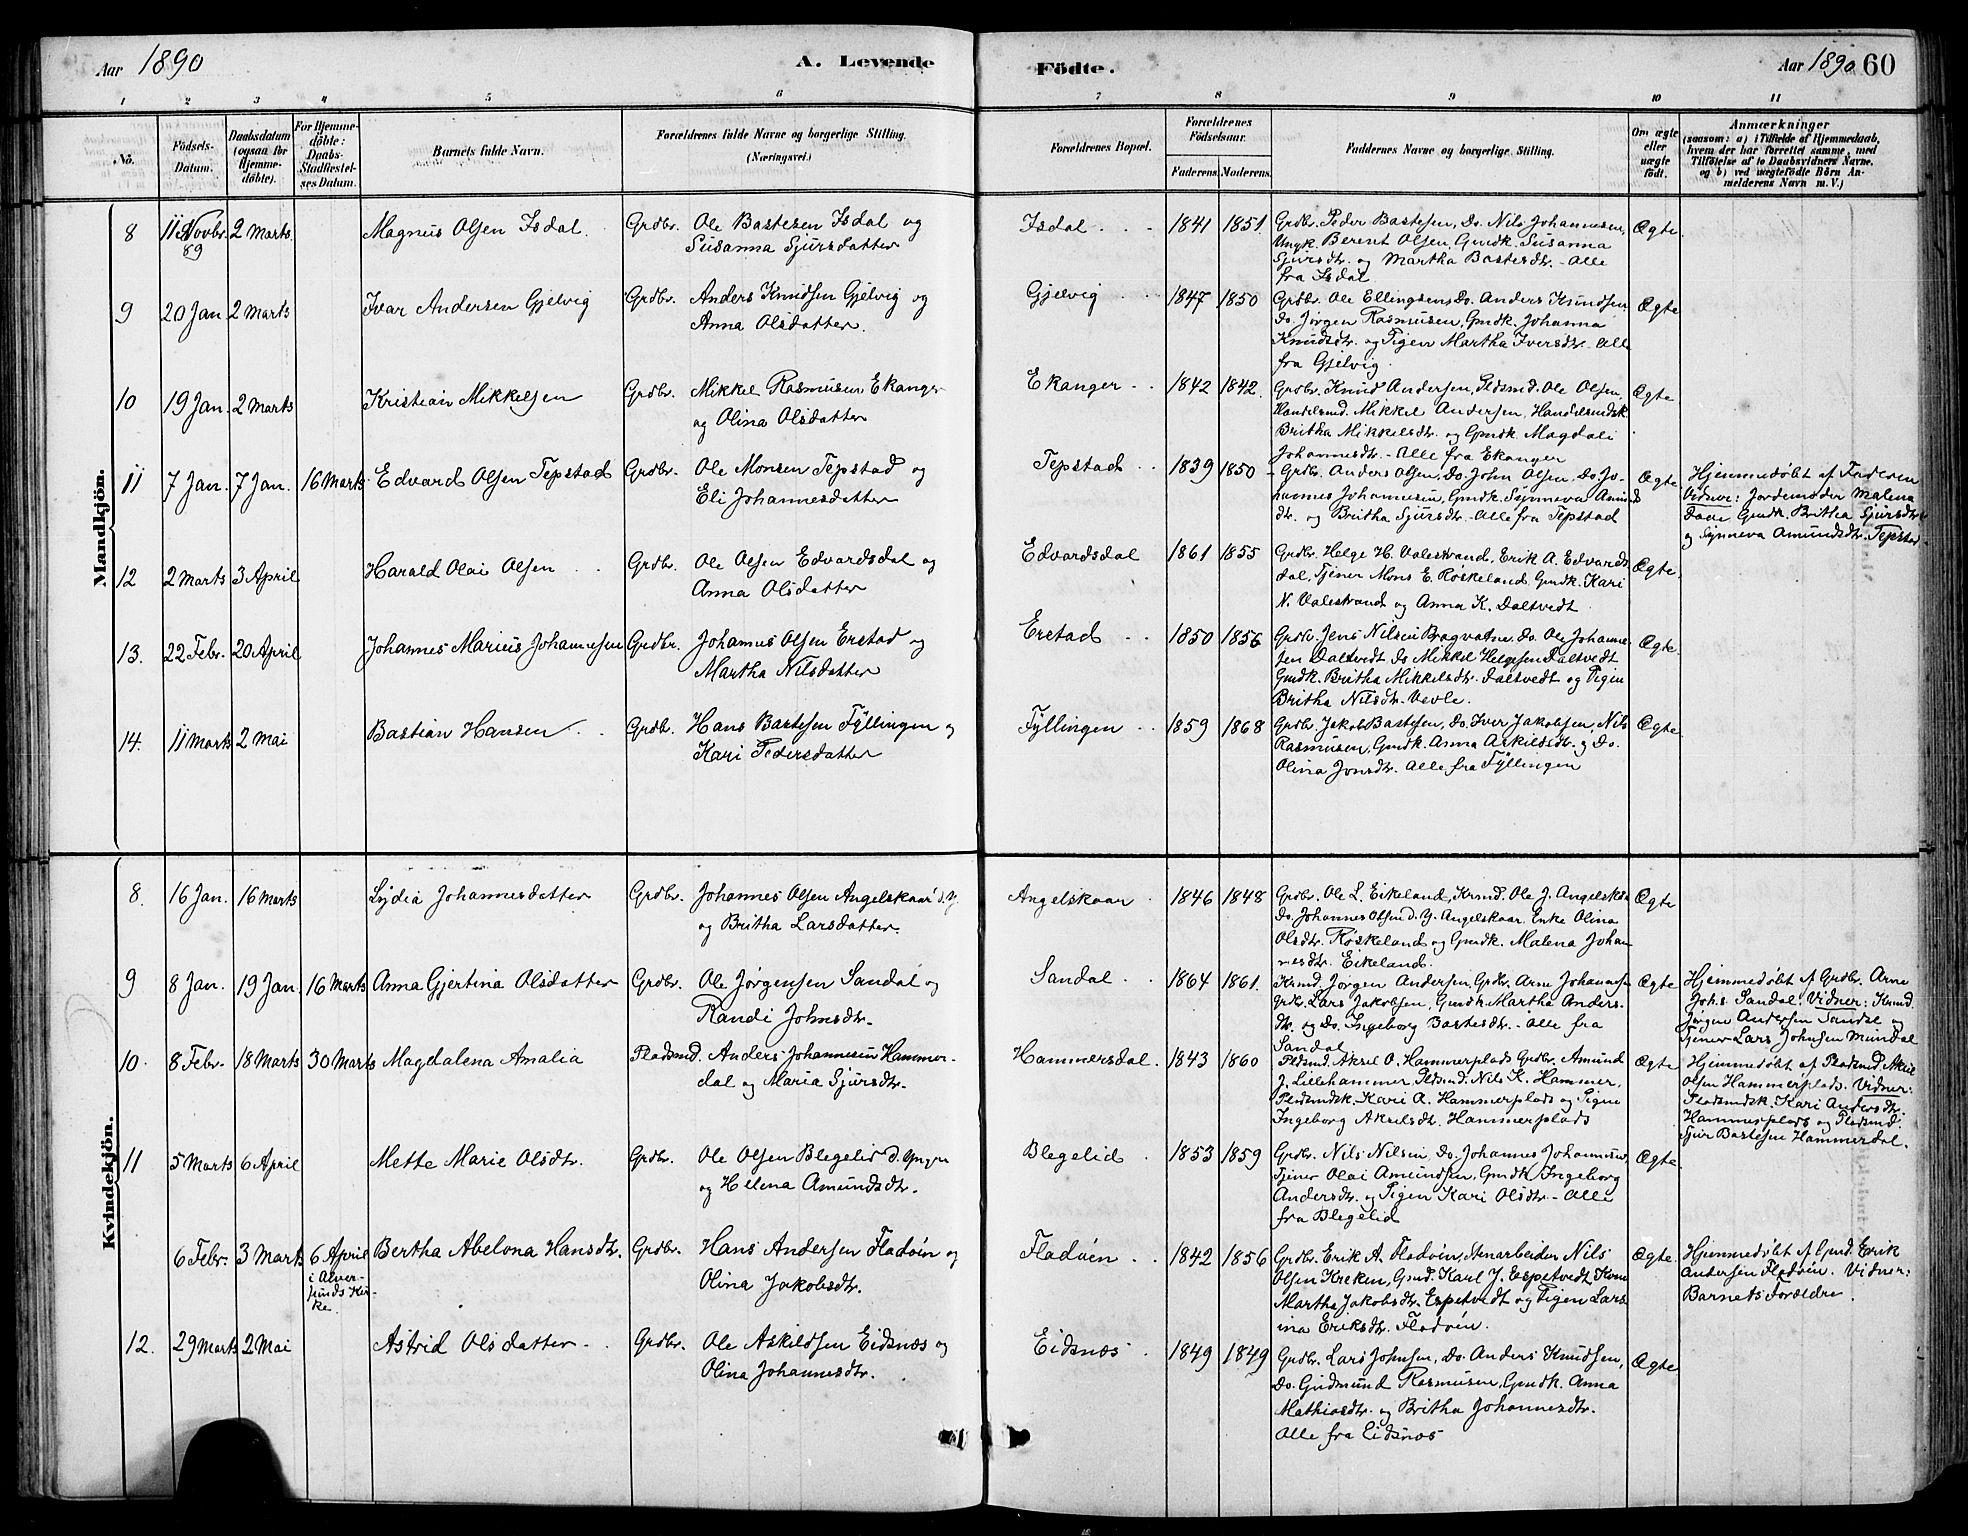 Aar 1890 A. Levende Födte. Aar 1890 60
1 2 3 4 5 6 7 8 9 10 11
No.
Födsels-
Datum.
Daabsdatum
(ogsaa for
Hjemme-
döbte).
For Hjemme-
döbte:
Daabs-
Stadfæstel-
ses Datum.
Barnets fulde Navn.
Forældrenes fulde Navne og borgerlige Stilling.
(Næringsvei.)
Forældrenes Bopæl.
Forældrenes
Födselsaar.
Faderens. Moderens.
Faddernes Navne og borgerlige Stilling.
Om ægte
eller
uægte
födt.
Anmærkninger
(saasom: a) i Tilfælde af Hjemmedaab,
hvem der har forrettet samme, med
Tilföielse af to Daabsvidners Navne,
og b) ved uægtefödte Börn An-
melderens Navn m. V.)
Mandkjön.
8 11 Novbr. 89 2 Marts Magnus Olsen Isdal Grdbr. Ole Bastesen Isdal og
Susanna Sjursdatter
Isdal 1841 1851
Grdbr. Peder Bastesen, Do. Nils Johannesen,
Ungk. Berent Olsen, Gmdk. Susanna
Sjursdtr. og Martha Bastesdtr. - Alle
fra Isdal
Ægte
9 20 Jan. 2 Marts Ivar Andersen Gjelvig Grdbr. Anders Knudsen Gjelvig og
Anna Olsdatter.
Gjelvig 1847 1850
Grdbr. Ole Ellingsen, Do. Anders Knudsen,
Do. Jørgen Rasmusen, Gmdk. Johanna
Knudsdtr. og Pigen Martha Iversdtr. - Alle
fra Gjelvig.
Ægte
10 19 Jan. 2 Marts Kristian Mikkelsen Grdbr. Mikkel Rasmusen Ekanger
og Olina Olsdatter
Ekanger 1842 1842.
Grdbr. Knud Andersen, Pldsmd. Ole Olsen,
Handelsmd. Mikkel Andersen, Handelsmdsk.
Britha Mikkelsdtr. og Gmdk. Magdali
Johannesdtr. - Alle fra Ekanger
Ægte
11 7 Jan. 7 Jan. 16 Marts Edvard Olsen Tepstad Grdbr. Ole Monsen Tepstad og
Eli Johannesdatter
Tepstad 1839 1850
Grdbr. Anders Olsen, Do. John Olsen, Do. Jo-
hannes Johannesen, Gmdk. Synneva Amunds
dtr. og Britha Sjursdtr. - Alle fra Tepstad
Ægte
Hjemmedøbt af Faderen
Vidner: Jordemoder Malena
Gmdk. Britha Sjursdtr.
og Synneva Amundsdtr. Tepstad.
12 2 Marts 3 April Harald Olai Olsen Grdbr. Ole Olsen Edvardsdal og
Anna Olsdatter
Edvardsdal 1861 1855
Grdbr. Helge H. Valestrand, Erik A. Edvards
dal, Tjener Mons E. Røskeland, Gmdk. Kari
N. Valestrand og Anna K. Daltvedt
Ægte.
13. 22 Febr. 20 April Johannes Marius Johannesen Grdbr. Johannes Olsen Erstad og
Martha Nilsdatter
Erstad 1850 1856
Grdbr. Jens Nilsen Bragvatne, Do. Ole Johanne-
sen Daltvedt Do Mikkel Helgesen Daltvedt
Gmdk. Britha Mikkelsdtr. Daltvedt og Pigen
Britha Nilsdtr. Vevle.
Ægte.
14. 11 Marts 2 Mai Bastian Hansen Grdbr. Hans Bastesen Fyllingen og
Kari Pedersdatter
Fyllingen 1859 1868
Grdbr. Jakob Bastesen, Do. Iver Jakobsen, Nils
Rasmusen, Gmdk. Anna Askildsdtr. og Do.
Olina Jonsdtr. Alle fra Fyllingen
Ægte
Kvindekjön.
8. 16 Jan. 16 Marts Lydia Johannesdatter Grdbr. Johannes Olsen Angelskaar d. Y.
og Britha Larsdatter
Angelskaar 1846 1848
Grdbr. Ole L. Eikeland, Krmd. Ole J. Angelskaar
Do. Johannes Olsen d. Y. Angelskaar, Enke Olina
Olsdtr. Røskeland og Gmdk. Malena Johan
nesdtr. Eikeland.
Ægte
9 8 Jan. 19 Jan. 16 Marts Anna Gjertina Olsdatter Grdbr. Ole Jørgensen Sandal og
Randi Johnsdtr.
Sandal 1864 1861.
Krmd. Jørgen Andersen, Grdbr. Arne Johannesen
Grdbr. Lars Jakobsen, Gmdk. Martha Anders-
dtr. og Do. Ingeborg Bastesdtr. - Alle fra
Sandal
Ægte
Hjemmedøbt af Grdbr. Arne
Johs. Sandal. Vidner: Krmd.
Jørgen Andersen Sandal og
Tjener Lars Johnsen Mundal
10. 8 Febr. 18 Marts 30 Marts Magdalena Amalia Pladsmd. Anders Johannesen Hammer-
dal og Maria Sjursdtr.
Hammersdal. 1843 1860
Pldsmd. Aksel O. Hammerplads Grdbr. Amund
J. Lillehammer, Pldsmd. Nils K. Hammer,
Pladsmdsk. Kari A. Hammerplads og Pigen
Ingeborg Akselsdtr. Hammerplads
Ægte
Hjemmedøbt af Pladsmd. Aksel
Olsen Hammerplads. Vidner:
Pladsmdsk. Kari Andersdtr.
Hammerplads og Pladsmd.
Sjur Bastesen Hammerdal.
11 5 Marts 6 April Mette Marie Olsdtr. Grdbr. Ole Olsen Blegelid d. Yngre
og Helena Amundsdtr.
Blegelid 1853 1859
Grdbr. Nils Nilsen, Do. Johannes Johannesen,
Tjener Olai Amundsen, Gmdk Ingeborg
Andersdtr. og Pigen Kari Olsdtr. - Alle
fra Blegelid
Ægte.
6 Febr. 3 Marts 6 April
i Alver-
sunds Kir-
ke.
Bertha Abelona Hansdtr. Grdbr. Hans Andersen Fladøen og
Olina Jakobsdtr.
Fladøen 1842 1856
Grdbr. Erik A. Fladøen, Stenarbeider Nils
Olsen Kreken, Gmd. Karl J. Espetvedt Kone
Martha Jakobsdtr. Espetvedt og Pigen Lars
ina Eriksdtr. Fladøen.
Ægte.
Hjemmedøbt af Gmd. Erik
Andersen Fladøen. Vidner:
Barnets Forældre.
12. 29 Marts 2 Mai Astrid Olsdatter Grdbr. Ole Askildsen Eidsnæs og
Olina Johannesdtr.
Eidsnæs 1849 1849
Grdbr. Lars Johnsen, Do. Anders Knudsen,
Do. Gudmund Rasmusen, Gmdk. Anna
Mathiasdtr. og Britha Johannesdtr.
Alle fra Eidsnæs
Ægte